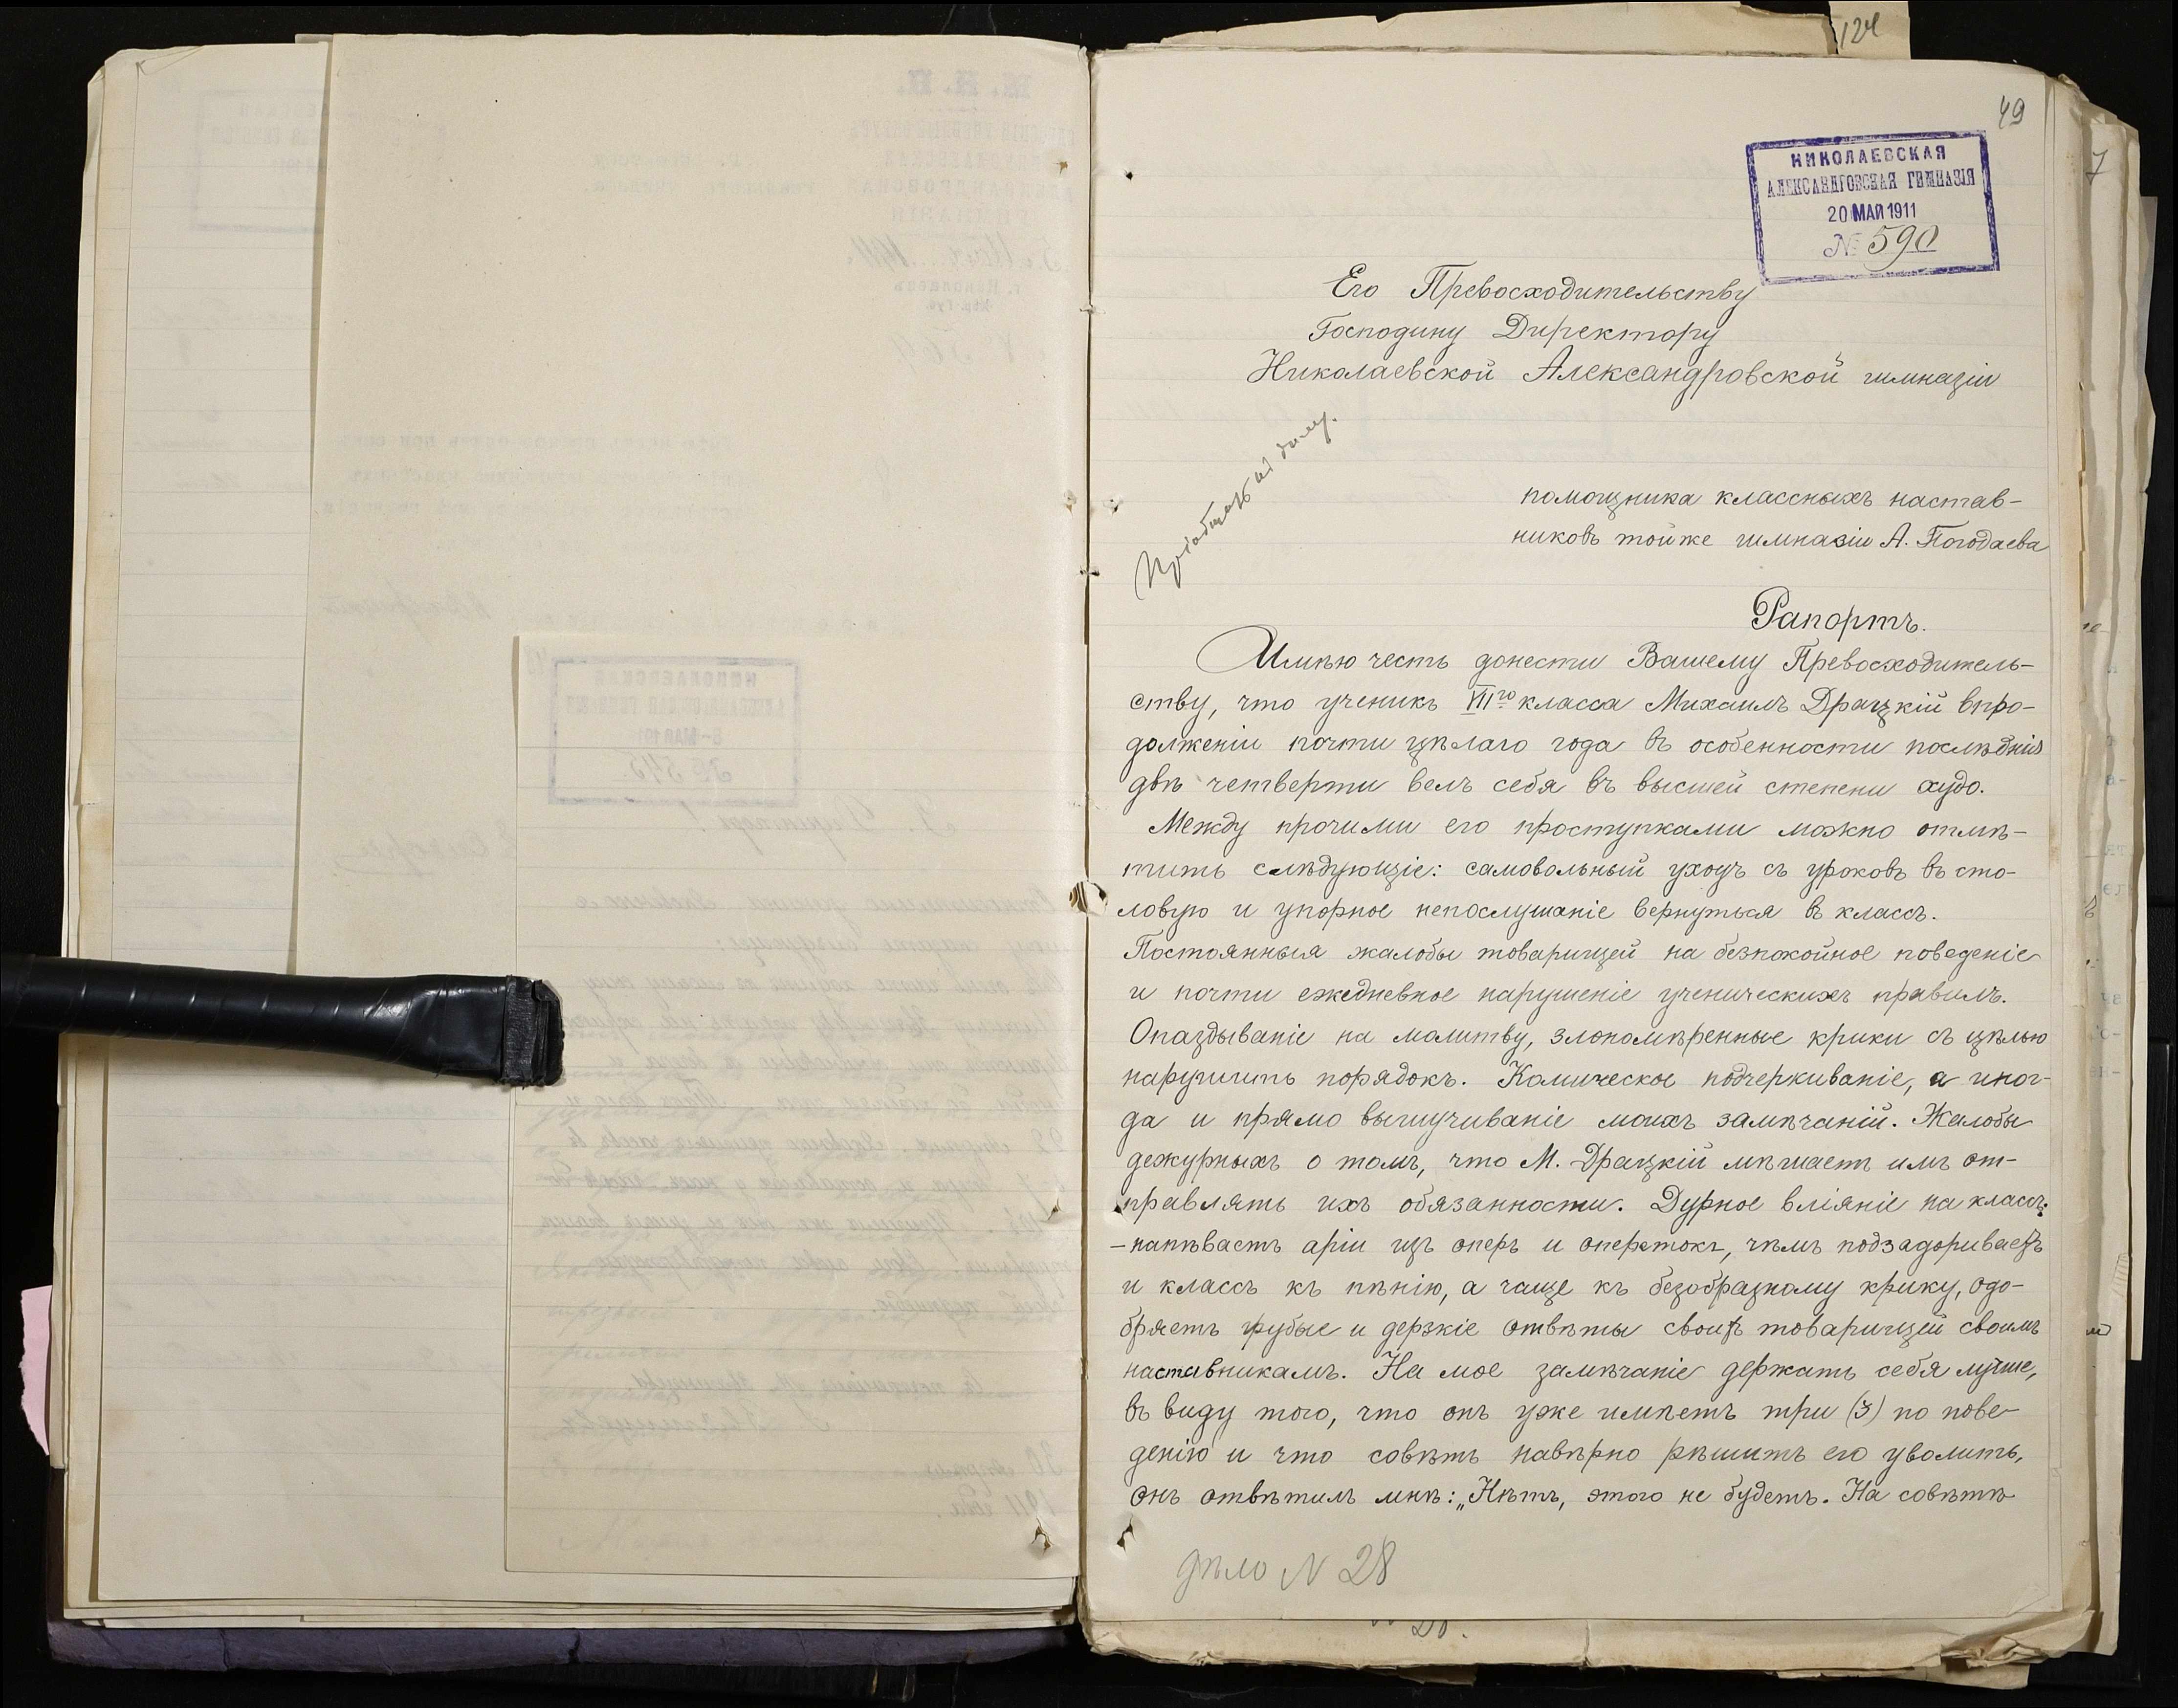 124
49
НИКОЛАЕВСКАЯ
АЛЕКСАНДРОВСКАЯ ГИМНАЗІЯ
20 МАЯ 1911
№ 590
Его Превосходительству
Господину Директору
Николаевской Александровской гимназіи
помощника классныхъ настав-
никовъ тойже гимназіи А. Погодаева
Рапортъ.
Имѣю честь донести Вашему Превосходитель-
ству, что ученикъ VII го класса Михаилъ Драцкій впро-
долженіи почти цѣлаго года въ особенности послѣднія
двѣ четверти велъ себя въ высшей степени худо.
Между прочими его проступками можно отмѣ-
тить слѣдующіе: самовольный уходъ съ уроковъ въ сто-
ловую и упорное непослушаніе вернуться въ классъ.
Постоянныя жалобы товарищей на безпокойное поведеніе
и почти ежедневное нарушеніе ученическихъ правилъ.
Опаздываніе на молитву, злонамѣренные крики съ цѣлью
нарушить порядокъ. Комическое подчеркиваніе, а иног-
да и прямо вышучиваніе моихъ замѣчаній. Жалобы
дежурныхъ о томъ, что М. Драцкій мѣшаетъ имъ от-
правлять ихъ обязанности. Дурное вліяніе на классъ:
- напѣваетъ аріи изъ оперъ и оперетокъ, чѣмъ подзадориваетъ
и классъ къ пѣнію, а чаще къ безобразному крику, одо-
бряетъ грубые и дерзкіе отвѣты своихъ товарищей своимъ
наставникамъ. На мое замѣчаніе держать себя лучше,
въ виду того, что онъ уже имѣетъ три (3) по пове-
денію и что совѣтъ навѣрно рѣшитъ его уволить,
онъ отвѣтилъ мнѣ: „Нѣтъ, этого не будетъ. На совѣтѣ
дѣло N 28